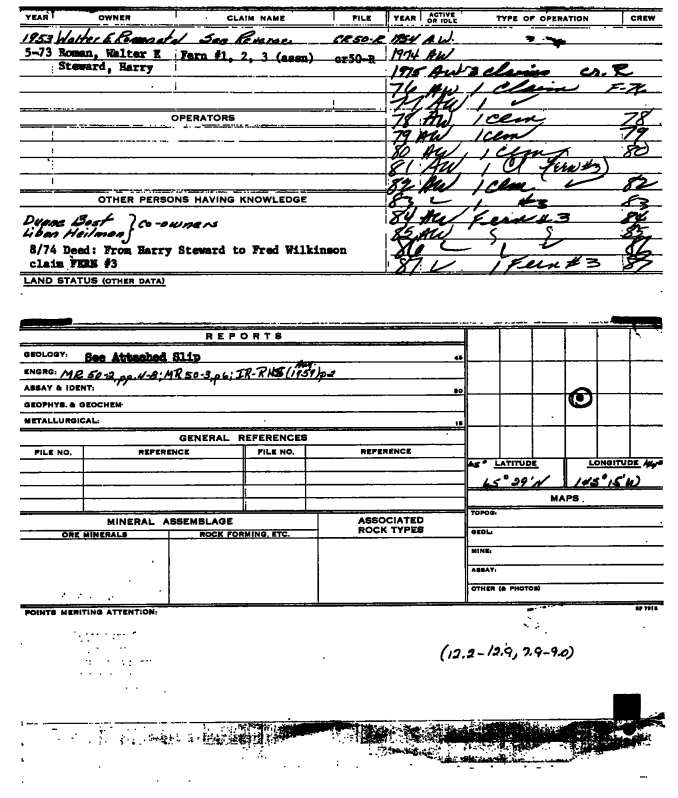 YEAR OWNER CLAIM NAME FILE YEAR ACTIVE OR IDLE TYPE OF OPERATION CREW
1953 Walter E. See Reverse CR50-R 1954 A.W.
5-73 Roman, Walter E Fern #1, 2, 3 (assn) cr50-R 1974 AW
Steward, Harry 1975 AW 3 claims cr. R
76 AW 1 Claim F-76
77 AW 1 ✓
OPERATORS 78 AW 1 clm 78
79 AW 1 clm 79
80 AW 1 clm 80
81 AW 1 Cl (Fern #3)
82 AW 1 clm ✓ 82
OTHER PERSONS HAVING KNOWLEDGE 83 1 #3 83
Duane Bost } Co-owners 84 AW Fern #3 84
Liban Heilman 85 AW 85
8/74 Deed: From Harry Steward to Fred Wilkinson 86 86
claim FERN #3 87 1 Fern #3 87
LAND STATUS (OTHER DATA)
REPORTS
GEOLOGY: See Attached Slip 45
ENGRG: MR 50-2, pp. 4-8; MR 50-3, p6; IR-RHS (Aug. 1959) p2
ASSAY & IDENT: 30
GEOPHYS. & GEOCHEM.
METALLURGICAL: 15
GENERAL REFERENCES
FILE NO. REFERENCE FILE NO. REFERENCE
65° LATITUDE LONGITUDE
65° 29' N 145° 15' W
MAPS
TOPOG:
MINERAL ASSEMBLAGE ASSOCIATED ROCK TYPES
ORE MINERALS ROCK FORMING, ETC.
GEOL:
MINE:
ASSAY:
OTHER (& PHOTOS)
POINTS MERITING ATTENTION:
(12.2-12.9, 7.9-9.0)